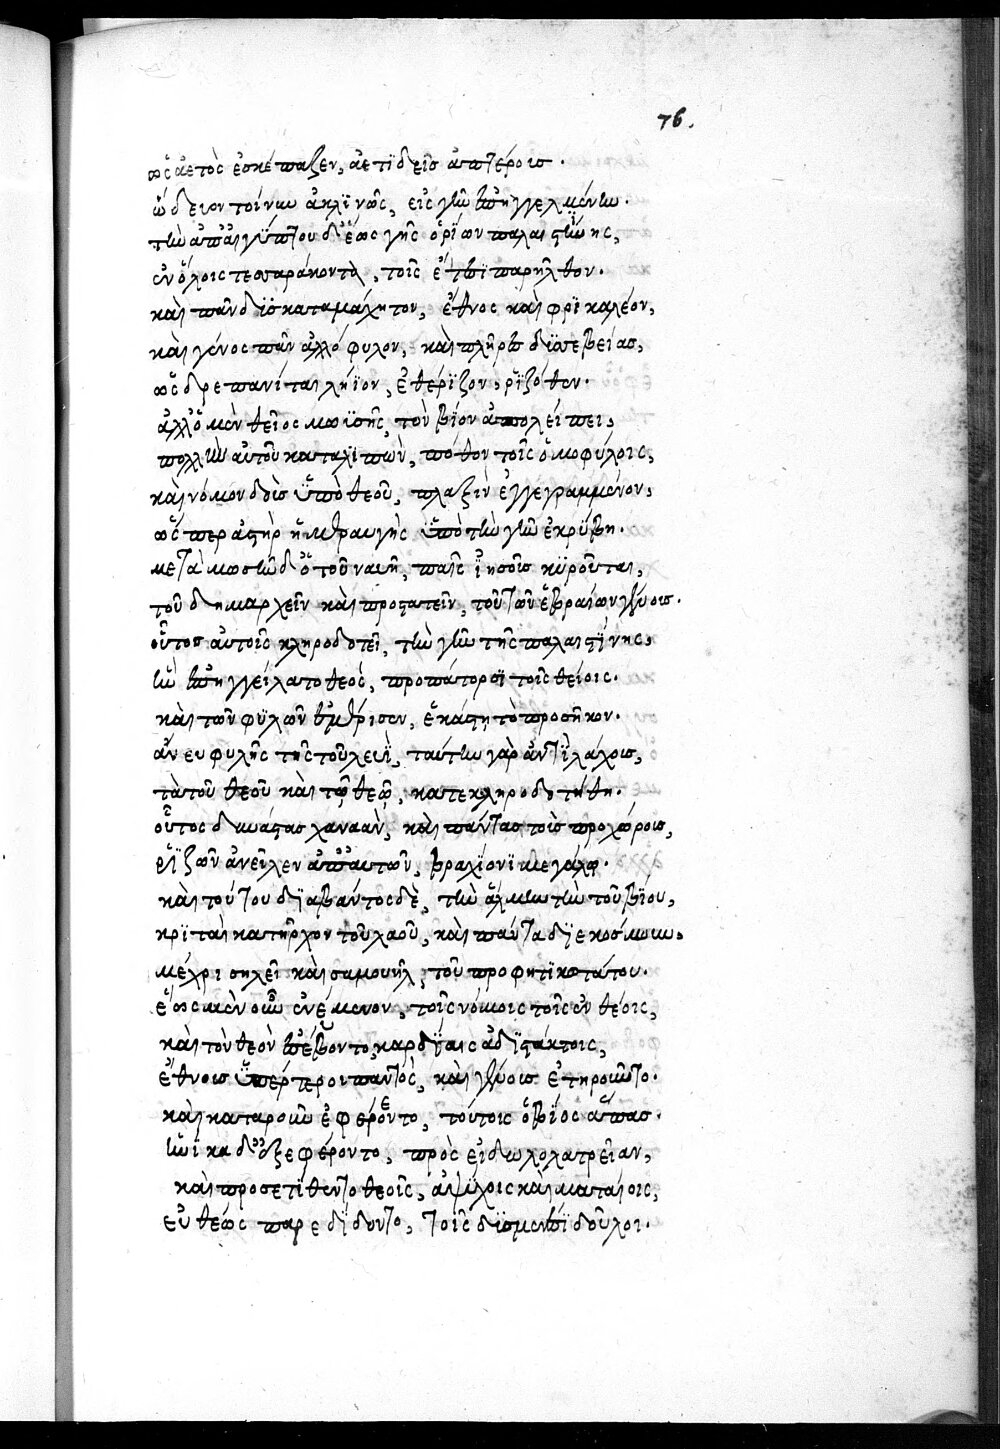 76.
ὡς ἀετὸς ἐσκέπαζεν, ἀετιδεῖς ἀπτέροις.
ὥδευον τοίνυν ἀκλινῶς, εἰς γῆν ἐπηγγελμένην.
τὴν ἀπ' αἰγύπτου δ' ἕως γῆς ὁρίων παλαιστίνης,
ἐν ὅλοις τεσσαράκοντα, τοῖς ἔτεσι παρῆλθον.
καὶ πᾶν δυσκαταμάχητον, ἔθνος καὶ φρικαλέον,
καὶ γένος πᾶν ἀλλόφυλον, καὶ πλῆρες δυσσεβείας,
ὡς δρεπανίται λήϊον, ἐθέριζον ῥιζόθεν.
ἀλλ' ὁ μὲν θεῖος μωϋσῆς, τὸν βίον ἀπολείπει,
πολλὴν αὐτοῦ καταλιπὼν, πόθον τοῖς ὁμοφύλοις,
καὶ νόμον δοὺς ὑπὸ θεοῦ, πλαξὶν ἐγγεγραμμένον,
ὥσπερ ἀστὴρ ἡμεραυγὴς ὑπὸ τὴν γῆν ἐκρύβη.
μετὰ μωσῆν δ' ὁ τοῦ ναυῆ, παῖς ἰησοῦς κυροῦται,
τοῦ δημαρχεῖν καὶ προστατεῖν, τοῦ τῶν ἑβραίων γένους.
οὗτος αὐτοῖς κληροδοτεῖ, τὴν γῆν τῆς παλαιστίνης,
ἣν ἐπηγγείλατο θεὸς, προπάτορσι τοῖς θείοις.
καὶ τῶν φυλῶν ἐμέρισεν, ἑκάστη τὸ προσῆκον.
ἄνευ φυλῆς τῆς τοῦ λευῒ, ταύτην γὰρ ἀντιλάχους,
τὰ τοῦ θεοῦ καὶ τῷ θεῷ, κατεκληροδοτήθη.
οὗτος δυνάστας χαναὰν, καὶ πάντας τοὺς προχώρους,
ῥιζῶν ἀνεῖλεν ἀπ' αὐτῶν, βραχίονι μεγάλῳ.
καὶ τούτου διαβάντος δὲ, τὴν ἅλμην τὴν τοῦ βίου,
κριταὶ κατῆρχον τοῦ λαοῦ, καὶ πάντα διεκόσμουν.
μέχρι σηλεὶ καὶ σαμουὴλ, τοῦ προφητικωτάτου.
ἕως μὲν οὖν ἐνέμενον, τοῖς νόμοις τοῖς ἐνθέοις,
καὶ τὸν θεὸν ἐσέβοντο, καρδίαις ἀδιστάκτοις,
ἔθνους ὑπέρτεροι παντὸς, καὶ γένους ἐτηροῦντο.
καὶ καταροῦν ἐφέροντο, τούτοις ὁ βίος ἅπας.
ἡνίκα δ' ἐξεφέροντο, πρὸς εἰδωλολατρείαν,
καὶ προσετίθεντο θεοῖς, ἀψύχοις καὶ ματαίοις,
εὐθέως παρεδίδοντο, τοῖς δυσμενέσι δοῦλοι.